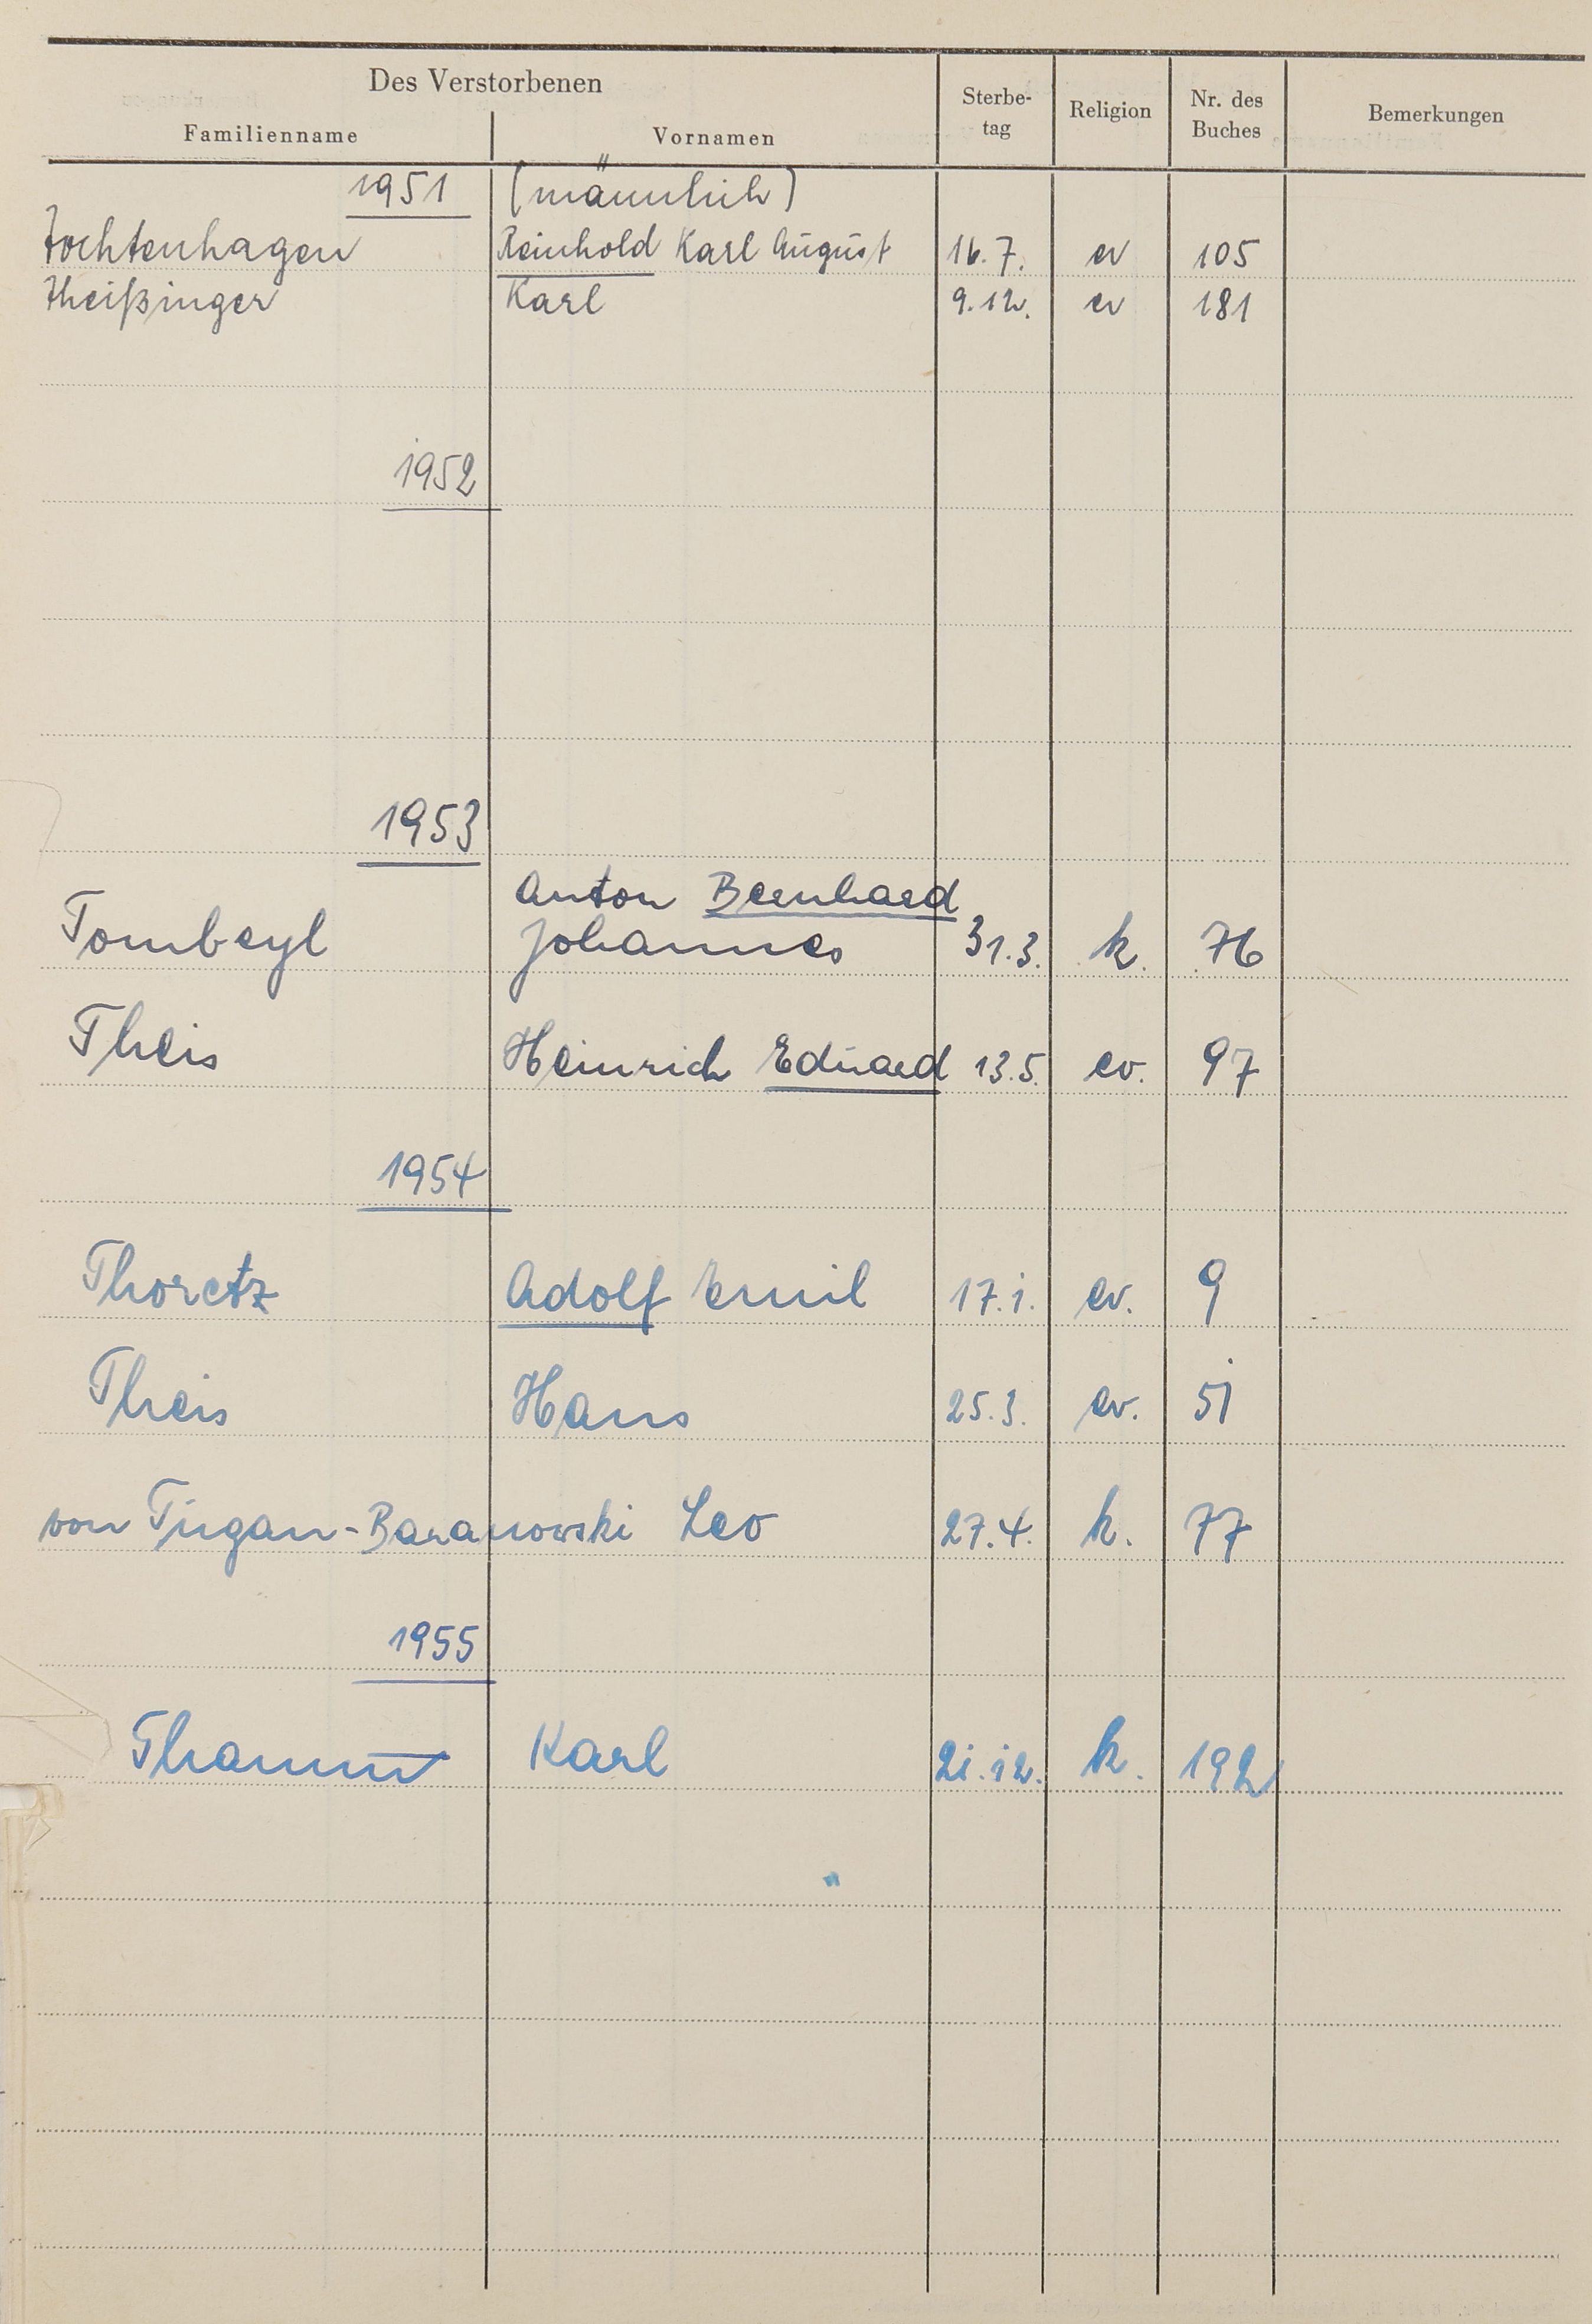 Des Verstorbenen
Familienname Vornamen Sterbe-tag Religion Nr. des Buches Bemerkungen
1951 (männlich)
Tochtenhagen Reinhold Karl August 16.7. ev 105
Theißinger Karl 9.12. ev 181
1952
1953
Anton Bernhard
Tombeyl Johannes 31.3. k. 76
Theis Heinrich Eduard 13.5. ev. 97
1954
Thoretz Adolf Emil 17.1. ev. 9
Theis Hans 25.3. ev. 51
von Tugan-Baranowski Leo 27.4. k. 77
1955
Thamm Karl 21.12. k. 192